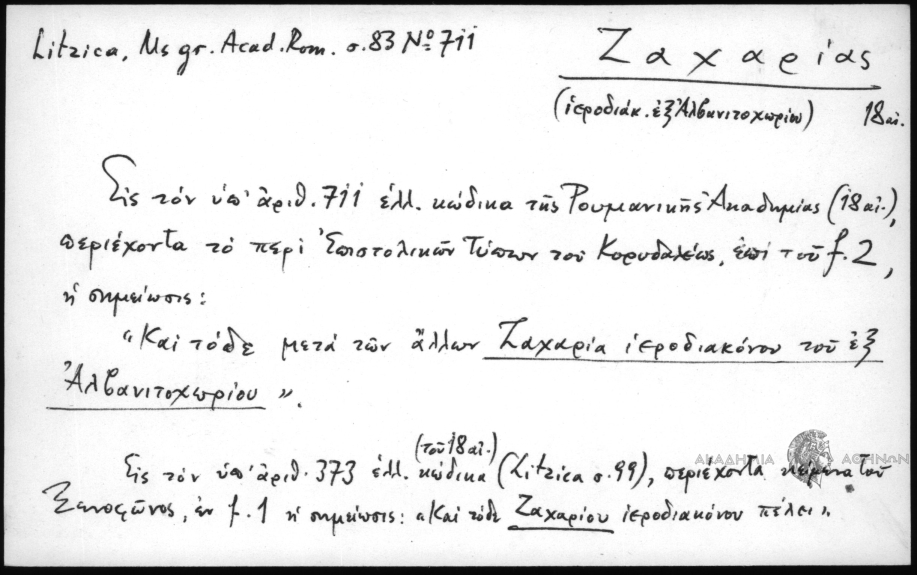 Litzica, Ms gr. Acad. Rom. σ. 83 Nº 711
Ζαχαρίας
(ἱεροδιάκ. ἐξ Ἀλβανιτοχωρίου) 18 αἰ.
Εἰς τόν ὑπ' ἀριθ. 711 ἑλλ. κώδικα τῆς Ρουμανικῆς Ἀκαδημίας (18 αἰ.),
περιέχοντα τό περί Ἐπιστολικῶν Τύπων τοῦ Κορυδαλέως, ἐπί τοῦ f. 2,
ἡ σημείωσις:
"Καί τόδε μετά τῶν ἄλλων Ζαχαρία ἱεροδιακόνου τοῦ ἐξ
Ἀλβανιτοχωρίου".
(τοῦ 18 αἰ.)
Εἰς τόν ὑπ' ἀριθ. 373 ἑλλ. κώδικα (Litzica σ. 99), περιέχοντα κείμενα τοῦ
Ξενοφῶντος, ἐν f. 1 ἡ σημείωσις: "Καί τόδε Ζαχαρίου ἱεροδιακόνου πέλει"
ΑΚΑΔΗΜΙΑ ΑΘΗΝΩΝ